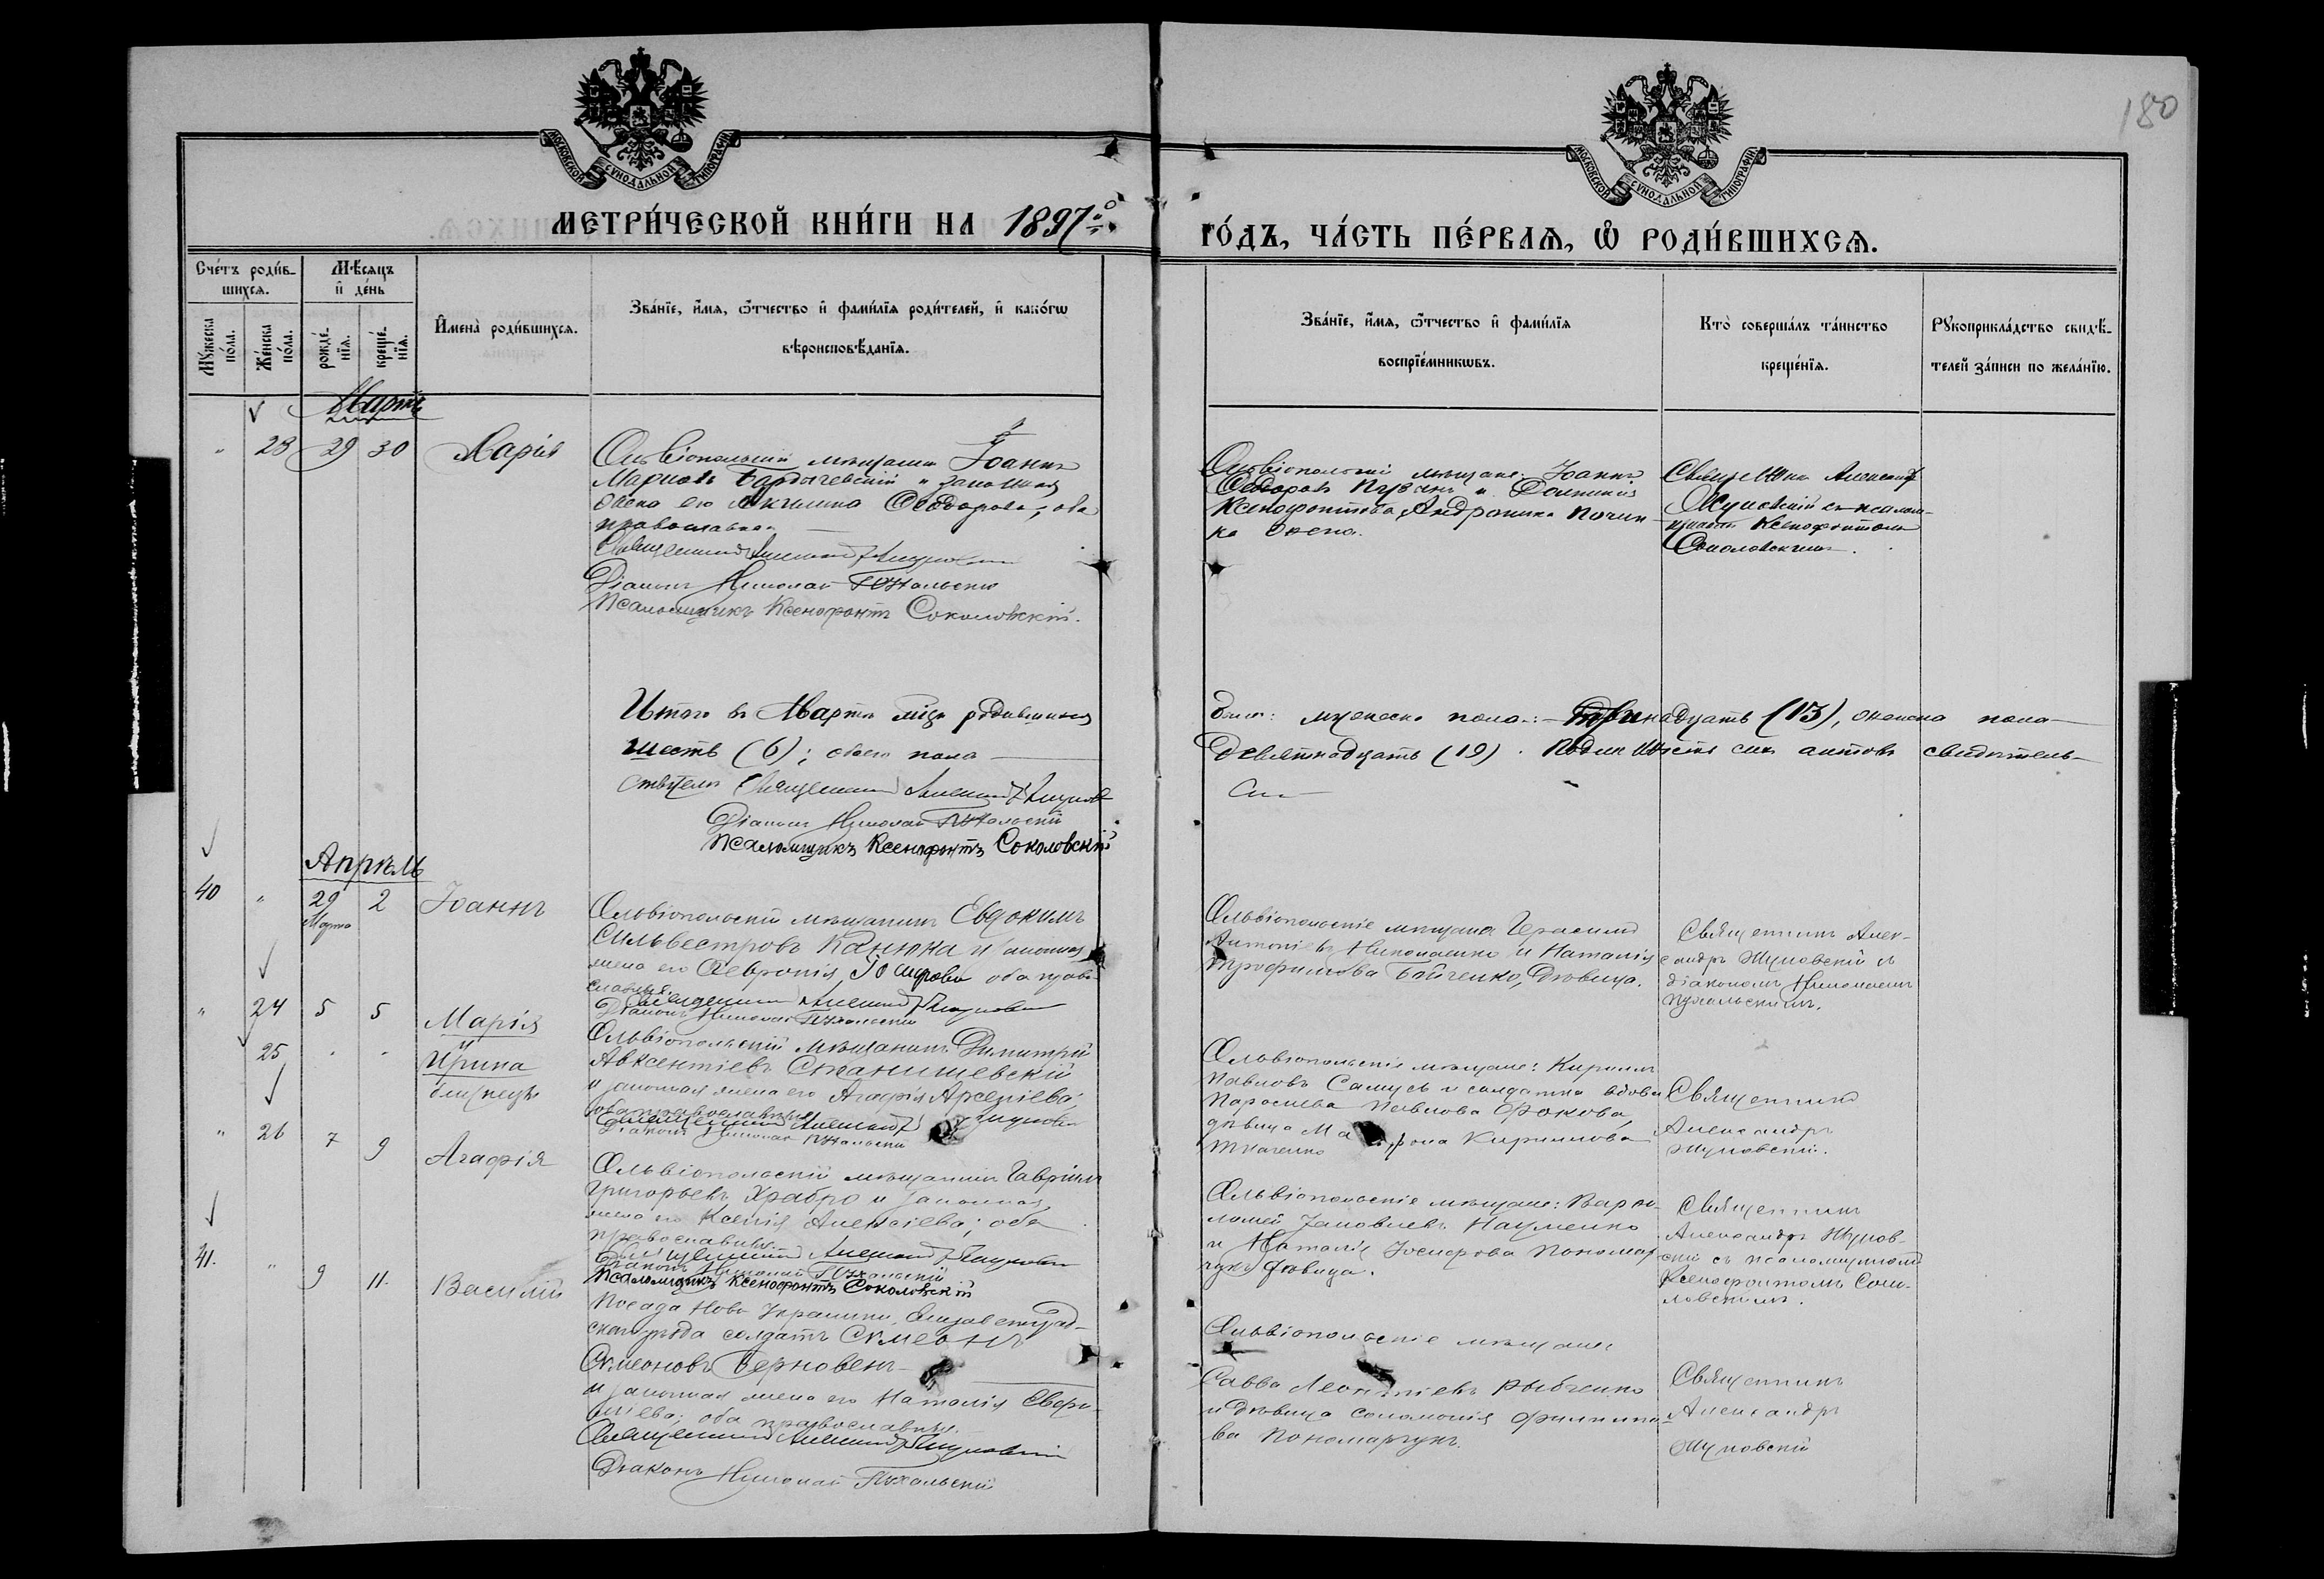 180
МОСКОВСКОЙ СѴНОДАЛЬНОЙ ТИПОГРАФІИ
МОСКОВСКОЙ СѴНОДАЛЬНОЙ ТИПОГРАФІИ
МЕТРИ́ЧЕСКОЙ КНИ́ГИ НА 1897.
ГО́ДЪ, ЧА́СТЬ ПЕ́РВАѦ, Ѿ РОДИ́ВШИХСѦ.
Сче́тъ роди́в-
шихсѧ.
Мѣ́сяцъ
и҆ де́нь
Мꙋ́жеска
по́ла.
Же́нска
по́ла.
рожде́-
нїѧ.
креще́-
нїѧ.
И҆мена̀ роди́вшихсѧ.
Зва́нїе, и҆́мѧ, ѻ҆́тчество и҆ фами́лїѧ роди́телей, и҆ како́гѡ
вѣроисповѣ́данїѧ.
Зва́нїе, и҆́мѧ, ѻ҆́тчество и҆ фами́лїѧ
воспрїе́мникѡвъ.
Кто̀ соверша́лъ та́инство
креще́нїѧ.
Рꙋкоприкла́дство свидѣ́-
телей за́писи по жела́нїю.
Мартъ
" 28 29 30 Марія
Ольвіопольскій мѣщанинъ Іоаннъ
Марковъ Бардичевскій и законная
жена его Акилина Ѳеодорова, оба
православные
Священникъ Александръ Жуковскій
Діаконъ Николай Пухальскій
Псаломщикъ Ксенофонтъ Соколовскій.
Ольвіопольскіе мѣщане: Іоаннъ
Ѳеодоровъ и
Ксенофонтова, Андроника
жена.
Священникъ Александръ
Жуковскій съ псалом-
щикомъ Ксенофонтомъ
Соколовскимъ.
Итого въ Мартѣ мцѣ родившихся
было: мужеска пола: тринадцать (13), женска пола
шесть (6); обоего пола
девятнадцать (19). Подлинность сихъ актовъ свидѣтель-
ствуемъ Священникъ Александръ Жуковскій
Діаконъ Николай Пухальскій
Псаломщикъ Ксенофонтъ Соколовскій
Апрѣль
40 " 29 Марта 2 Іоаннъ
Ольвіопольскій мѣщанинъ Евдокимъ
Сильвестровъ Канюка и законная
жена его Ѳевронія оба право-
славные.
Священникъ Александръ Жуковскій
Діаконъ Николай Пухальскій
Ольвіопольскіе мѣщане Герасимъ
Антоніевъ Николаенко и Наталія
Трофимова Бойченко, дѣвица.
Священникъ Алек-
сандръ Жуковскій съ
діакономъ Николаемъ
Пухальскимъ.
" 24 5 5 Марія
25 " " Ирина
близнецы
Ольвіопольскій мѣщанинъ Димитрій
Авксентіевъ Станишевскій
и законная жена его Агафія Арсеніева;
оба православные
Священникъ Александръ Жуковскій
Діаконъ Николай Пухальскій
Ольвіопольскіе мѣщане: Кириллъ
Павловъ Самусь и солдатка вдова
Параскева Павлова Фокова,
дѣвица Матрона Кириллова
Ткаченко
Священникъ
Александръ
Жуковскій.
" 26 7 9 Агафія
Ольвіопольскій мѣщанинъ Гавріилъ
Григорьевъ Храбро и законная
жена его Ксенія Алексіева; оба
православные.
Священникъ Александръ Жуковскій
Діаконъ Николай Пухальскій
Псаломщикъ Ксенофонтъ Соколовскій
Ольвіопольскіе мѣщане: Варфо-
ломей Іаковлевъ Науменко
и Наталія Іосифова Пономар-
чукъ дѣвица.
Священникъ
Александръ Жуков-
скій съ псаломщикомъ
Ксенофонтомъ Соко-
ловскимъ.
41. " 9 11. Василій
Посада Ново Украинки, Елизаветград-
скаго уѣзда солдатъ Симеонъ
Симеоновъ Берновенъ
и законная жена его Наталія Евфи-
міева; оба православные.
Священникъ Александръ Жуковскій
Діаконъ Николай Пухальскій
Ольвіопольскіе мѣщане
Савва Леонтіевъ Рыбченко
и дѣвица Соломонія Филиппо-
ва Пономарчукъ.
Священникъ
Александръ
Жуковскій